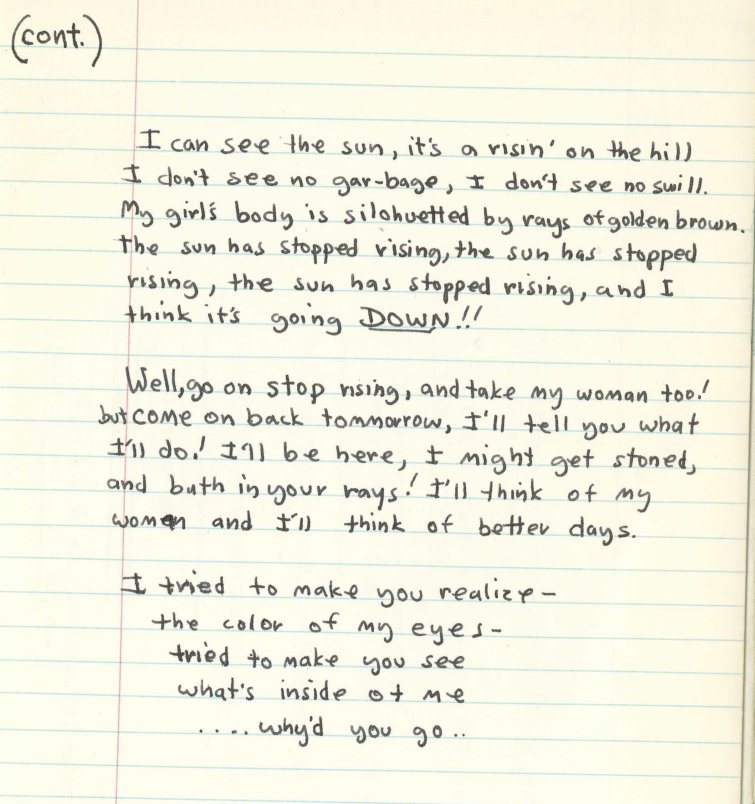 (cont.)
I can see the sun, it's a risin' on the hill
I don't see no gar-bage, I don't see no swill.
My girl's body is silohuetted by rays of golden brown.
the sun has stopped rising, the sun has stopped
rising, the sun has stopped rising, and I
think it's going DOWN!!
Well, go on stop rising, and take my woman too!
but come on back tommorrow, I'll tell you what
I'll do! I'll be here, I might get stoned,
and bath in your rays! I'll think of my
women and I'll think of better days.
I tried to make you realize-
the color of my eyes-
tried to make you see
what's inside of me
....why'd you go..